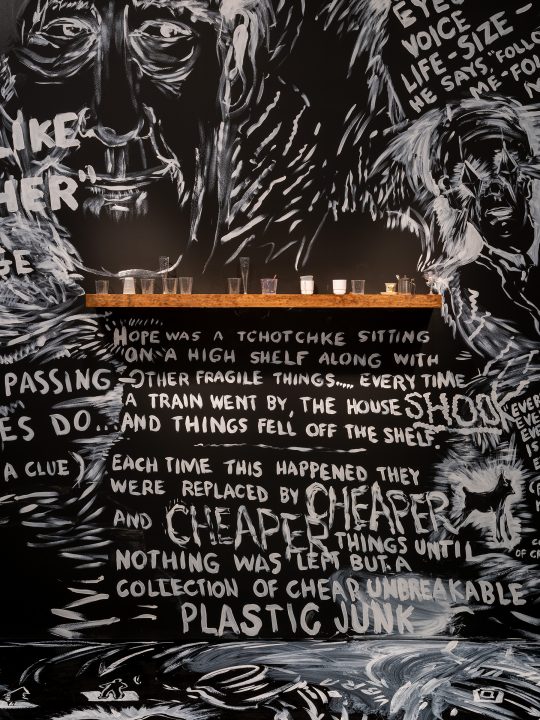 EYE
VOICE
LIFE-SIZE-
HE SAYS, "FOLLO
ME-FOL
LIKE
HER"
HOPE WAS A TCHOTCHKE SITTING
ON A HIGH SHELF ALONG WITH
OTHER FRAGILE THINGS.... EVERY TIME
A TRAIN WENT BY, THE HOUSE SHOOK
AND THINGS FELL OFF THE SHELF.
EACH TIME THIS HAPPENED THEY
WERE REPLACED BY CHEAPER
AND CHEAPER THINGS UNTIL
NOTHING WAS LEFT BUT A
COLLECTION OF CHEAP UNBREAKABLE
PLASTIC JUNK
PASSING
ES DO...
A CLUE)
EVER